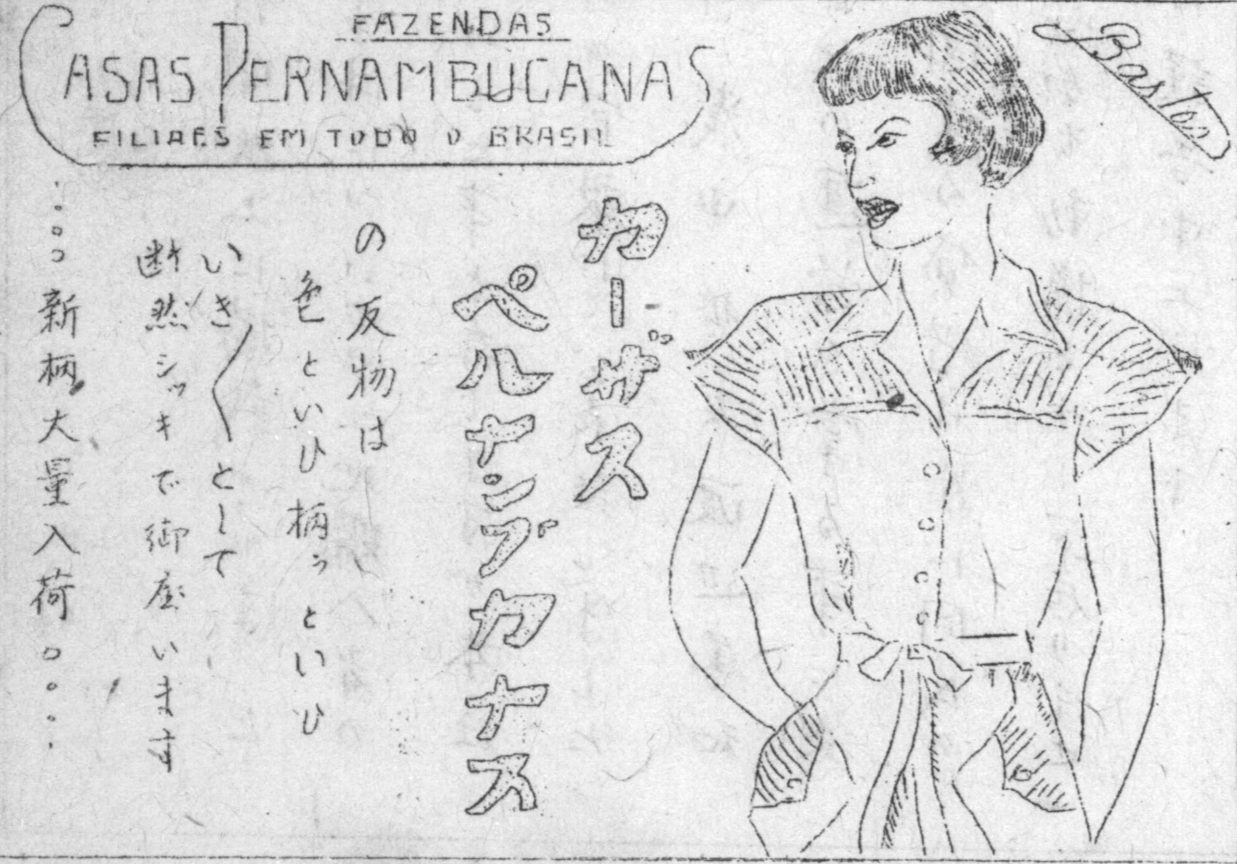 FAZENDAS
CASAS PERNAMBUCANAS
FILIAES EM TODO O BRASIL
カーザス
ペルナンブカナス
の反物は
色といひ柄っといひ
いき〱として
断然シッキで御座います
…。。新柄大量入荷。。…